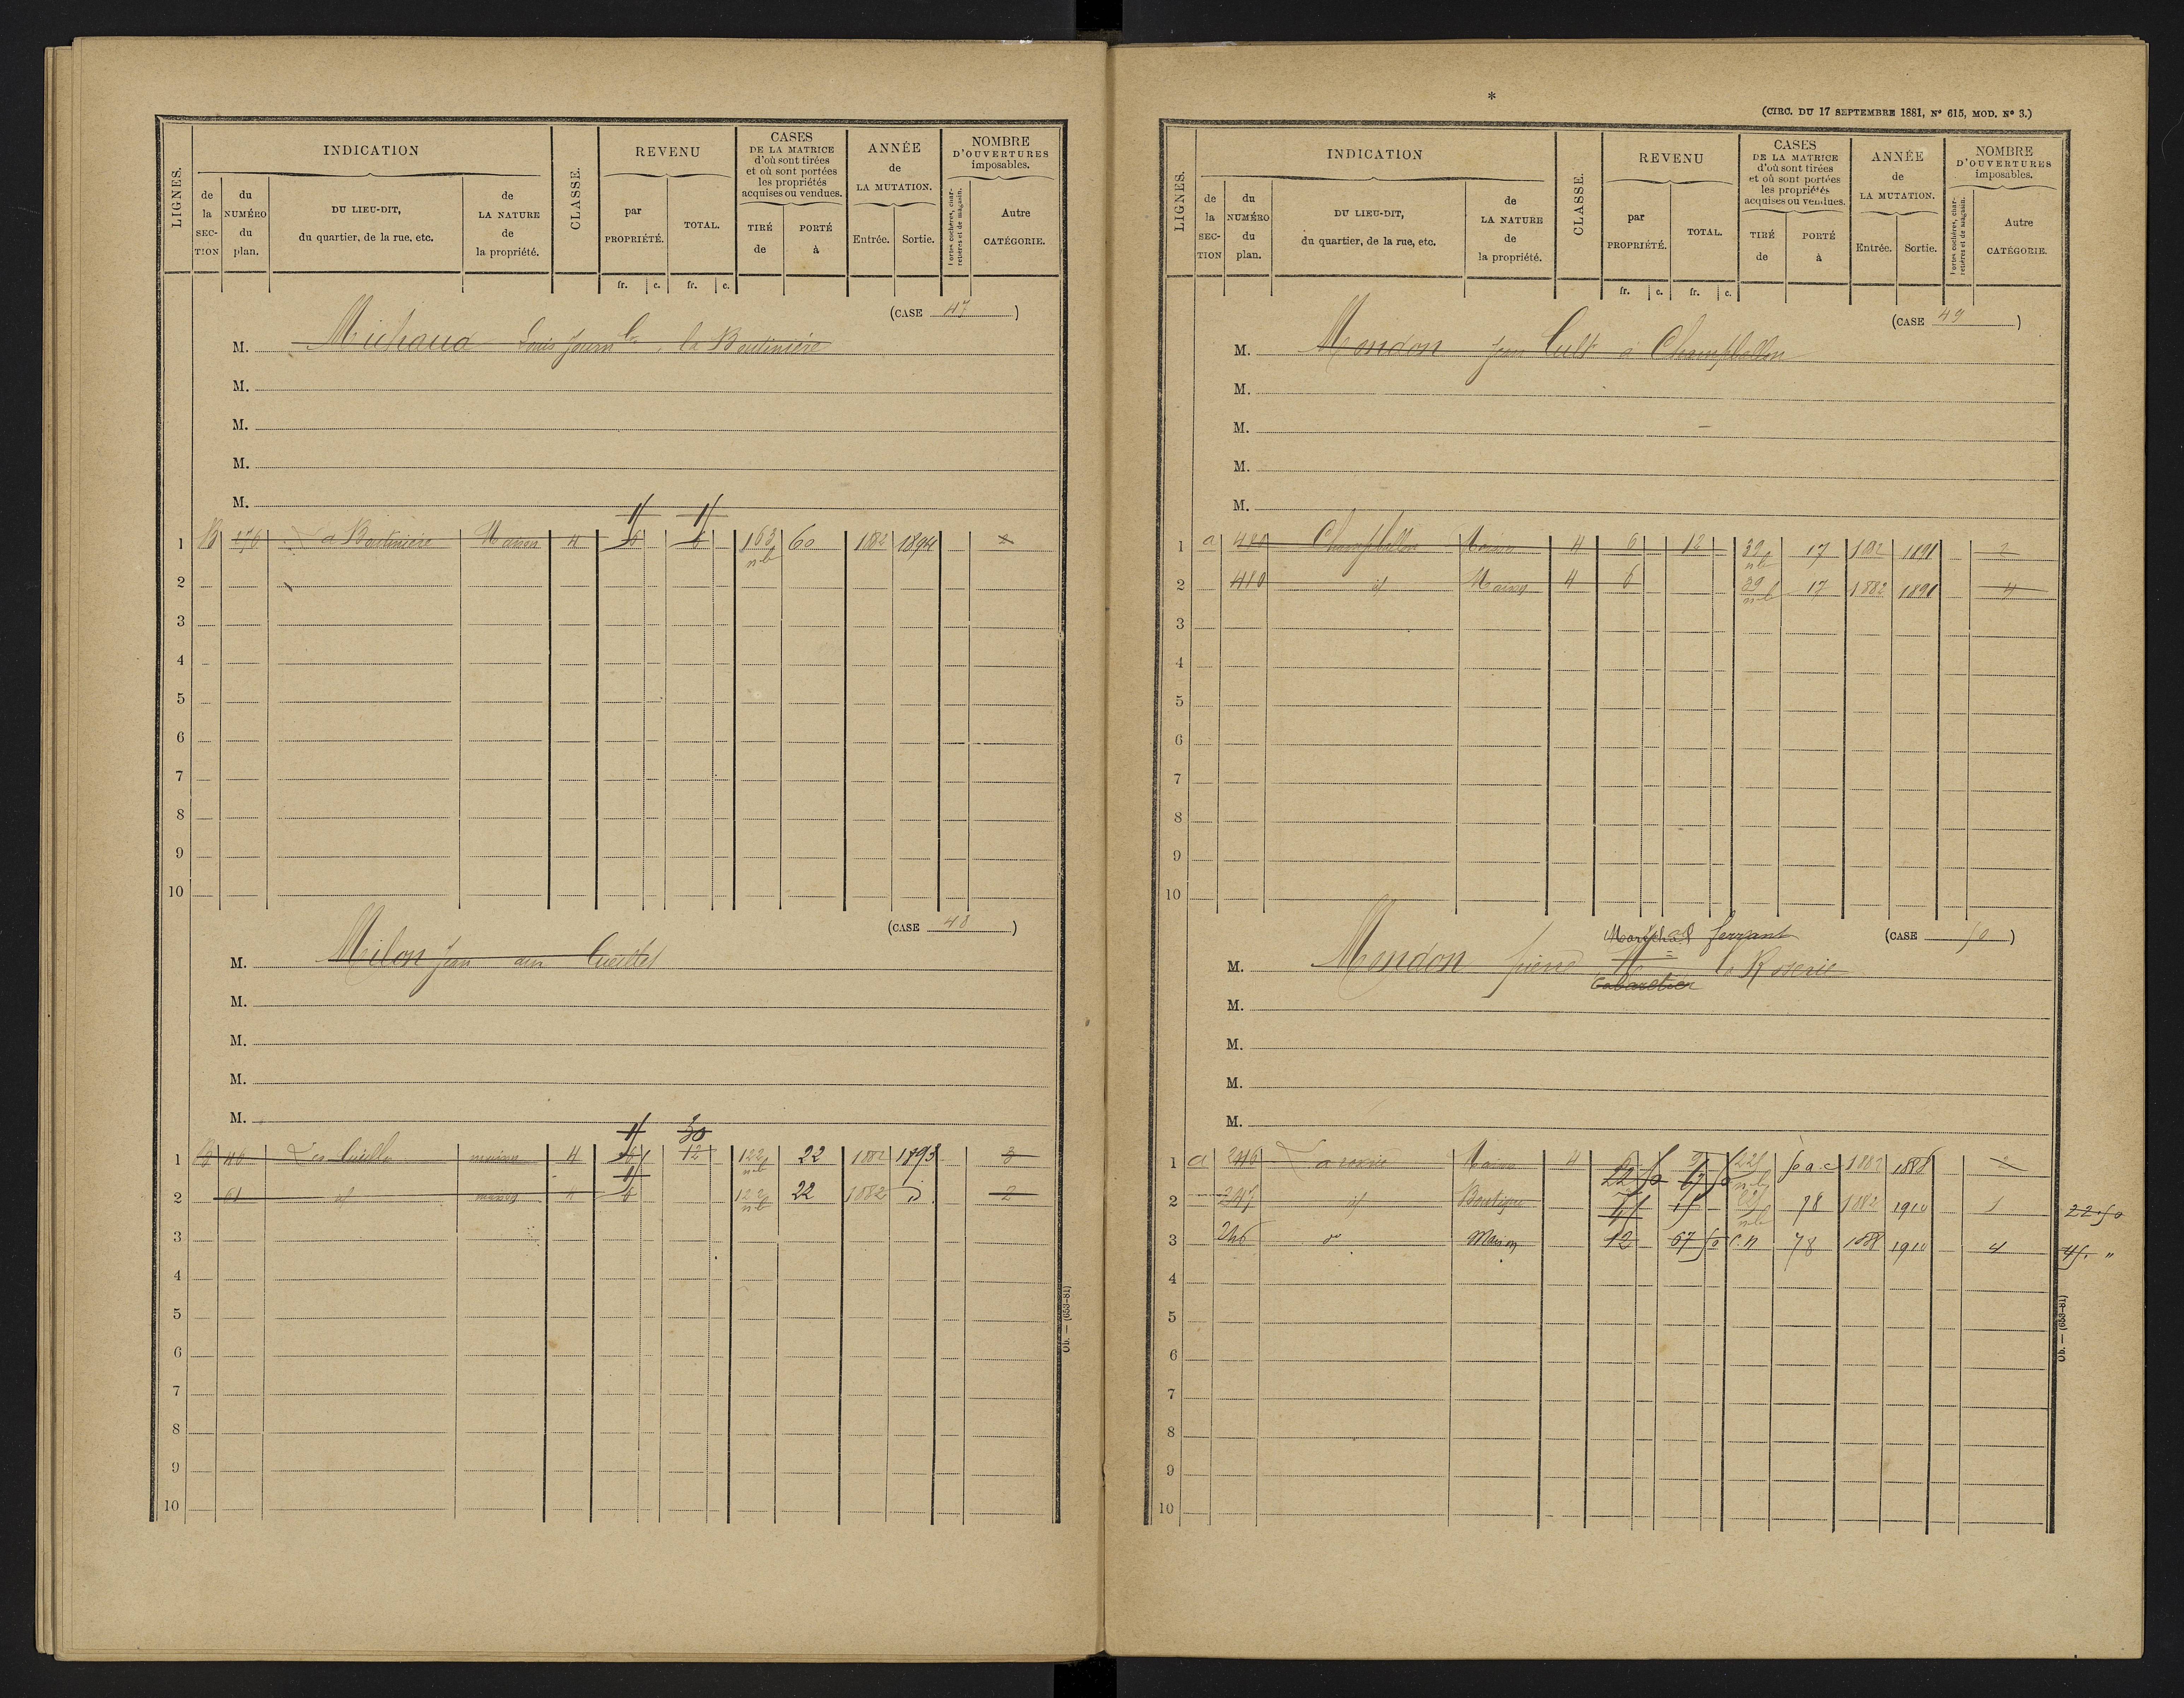 LIGNES.
INDICATION
de la SEC-TION
du NUMÉRO du plan.
DU LIEU-DIT, du quartier, de la rue, etc.
de LA NATURE de la propriété.
CLASSE.
REVENU
par PROPRIÉTÉ.
TOTAL.
fr. c. fr. c.
CASES DE LA MATRICE d'où sont tirées et où sont portées les propriétés acquises ou vendues.
TIRÉ de
PORTÉ à
ANNÉE de LA MUTATION.
Entrée. Sortie.
NOMBRE D'OUVERTURES imposables.
Portes cochères, charretières et de magasin.
Autre CATÉGORIE.
(CASE 47)
M. Michaud Louis journ la Boutinière
M.
M.
M.
M.
1 B 176 La Boutinière Maison 4 6 6 163 nb 60 1882 1894 2
2
3
4
5
6
7
8
9
10
(CASE 48)
M. Milon Jean aux
M.
M.
M.
M.
30
1 B 46 Les maison 4 12 122 nb 22 1882 1893 3
2 61 id maison 4 6 122 nb 22 1882 2
3
4
5
6
7
8
9
10
Ob. — (653-81)
*
(CIRC. DU 17 SEPTEMBRE 1881, N° 615, MOD. N° 3.)
LIGNES.
INDICATION
de la SEC-TION
du NUMÉRO du plan.
DU LIEU-DIT, du quartier, de la rue, etc.
de LA NATURE de la propriété.
CLASSE.
REVENU
par PROPRIÉTÉ.
TOTAL.
fr. c. fr. c.
CASES DE LA MATRICE d'où sont tirées et où sont portées les propriétés acquises ou vendues.
TIRÉ de
PORTÉ à
ANNÉE de LA MUTATION.
Entrée. Sortie.
NOMBRE D'OUVERTURES imposables.
Portes cochères, charretières et de magasin.
Autre CATÉGORIE.
(CASE 49)
M. Mondon Jean Cult à Champballon
M.
M.
M.
M.
1 a 480 Champballon Maison 4 6 12 39 nb 17 1882 1891 2
2 480 id Maison 4 6 39 nb 17 1882 1891 4
3
4
5
6
7
8
9
10
(CASE 50)
Maréchal ferrant
M. Mondon pierre la Roserie
Cabaretier
M.
M.
M.
M.
1 a 246 La roserie Maison 4 6 9 nb p.a.c 1882 1888 2
22 50 67 50
2 247 id Boutique nb 78 1882 1910 1 22.50
3 246 do Maison 12 67 50 C.N 78 1888 1910 4 45. "
4
5
6
7
8
9
10
Ob. — (653-81)